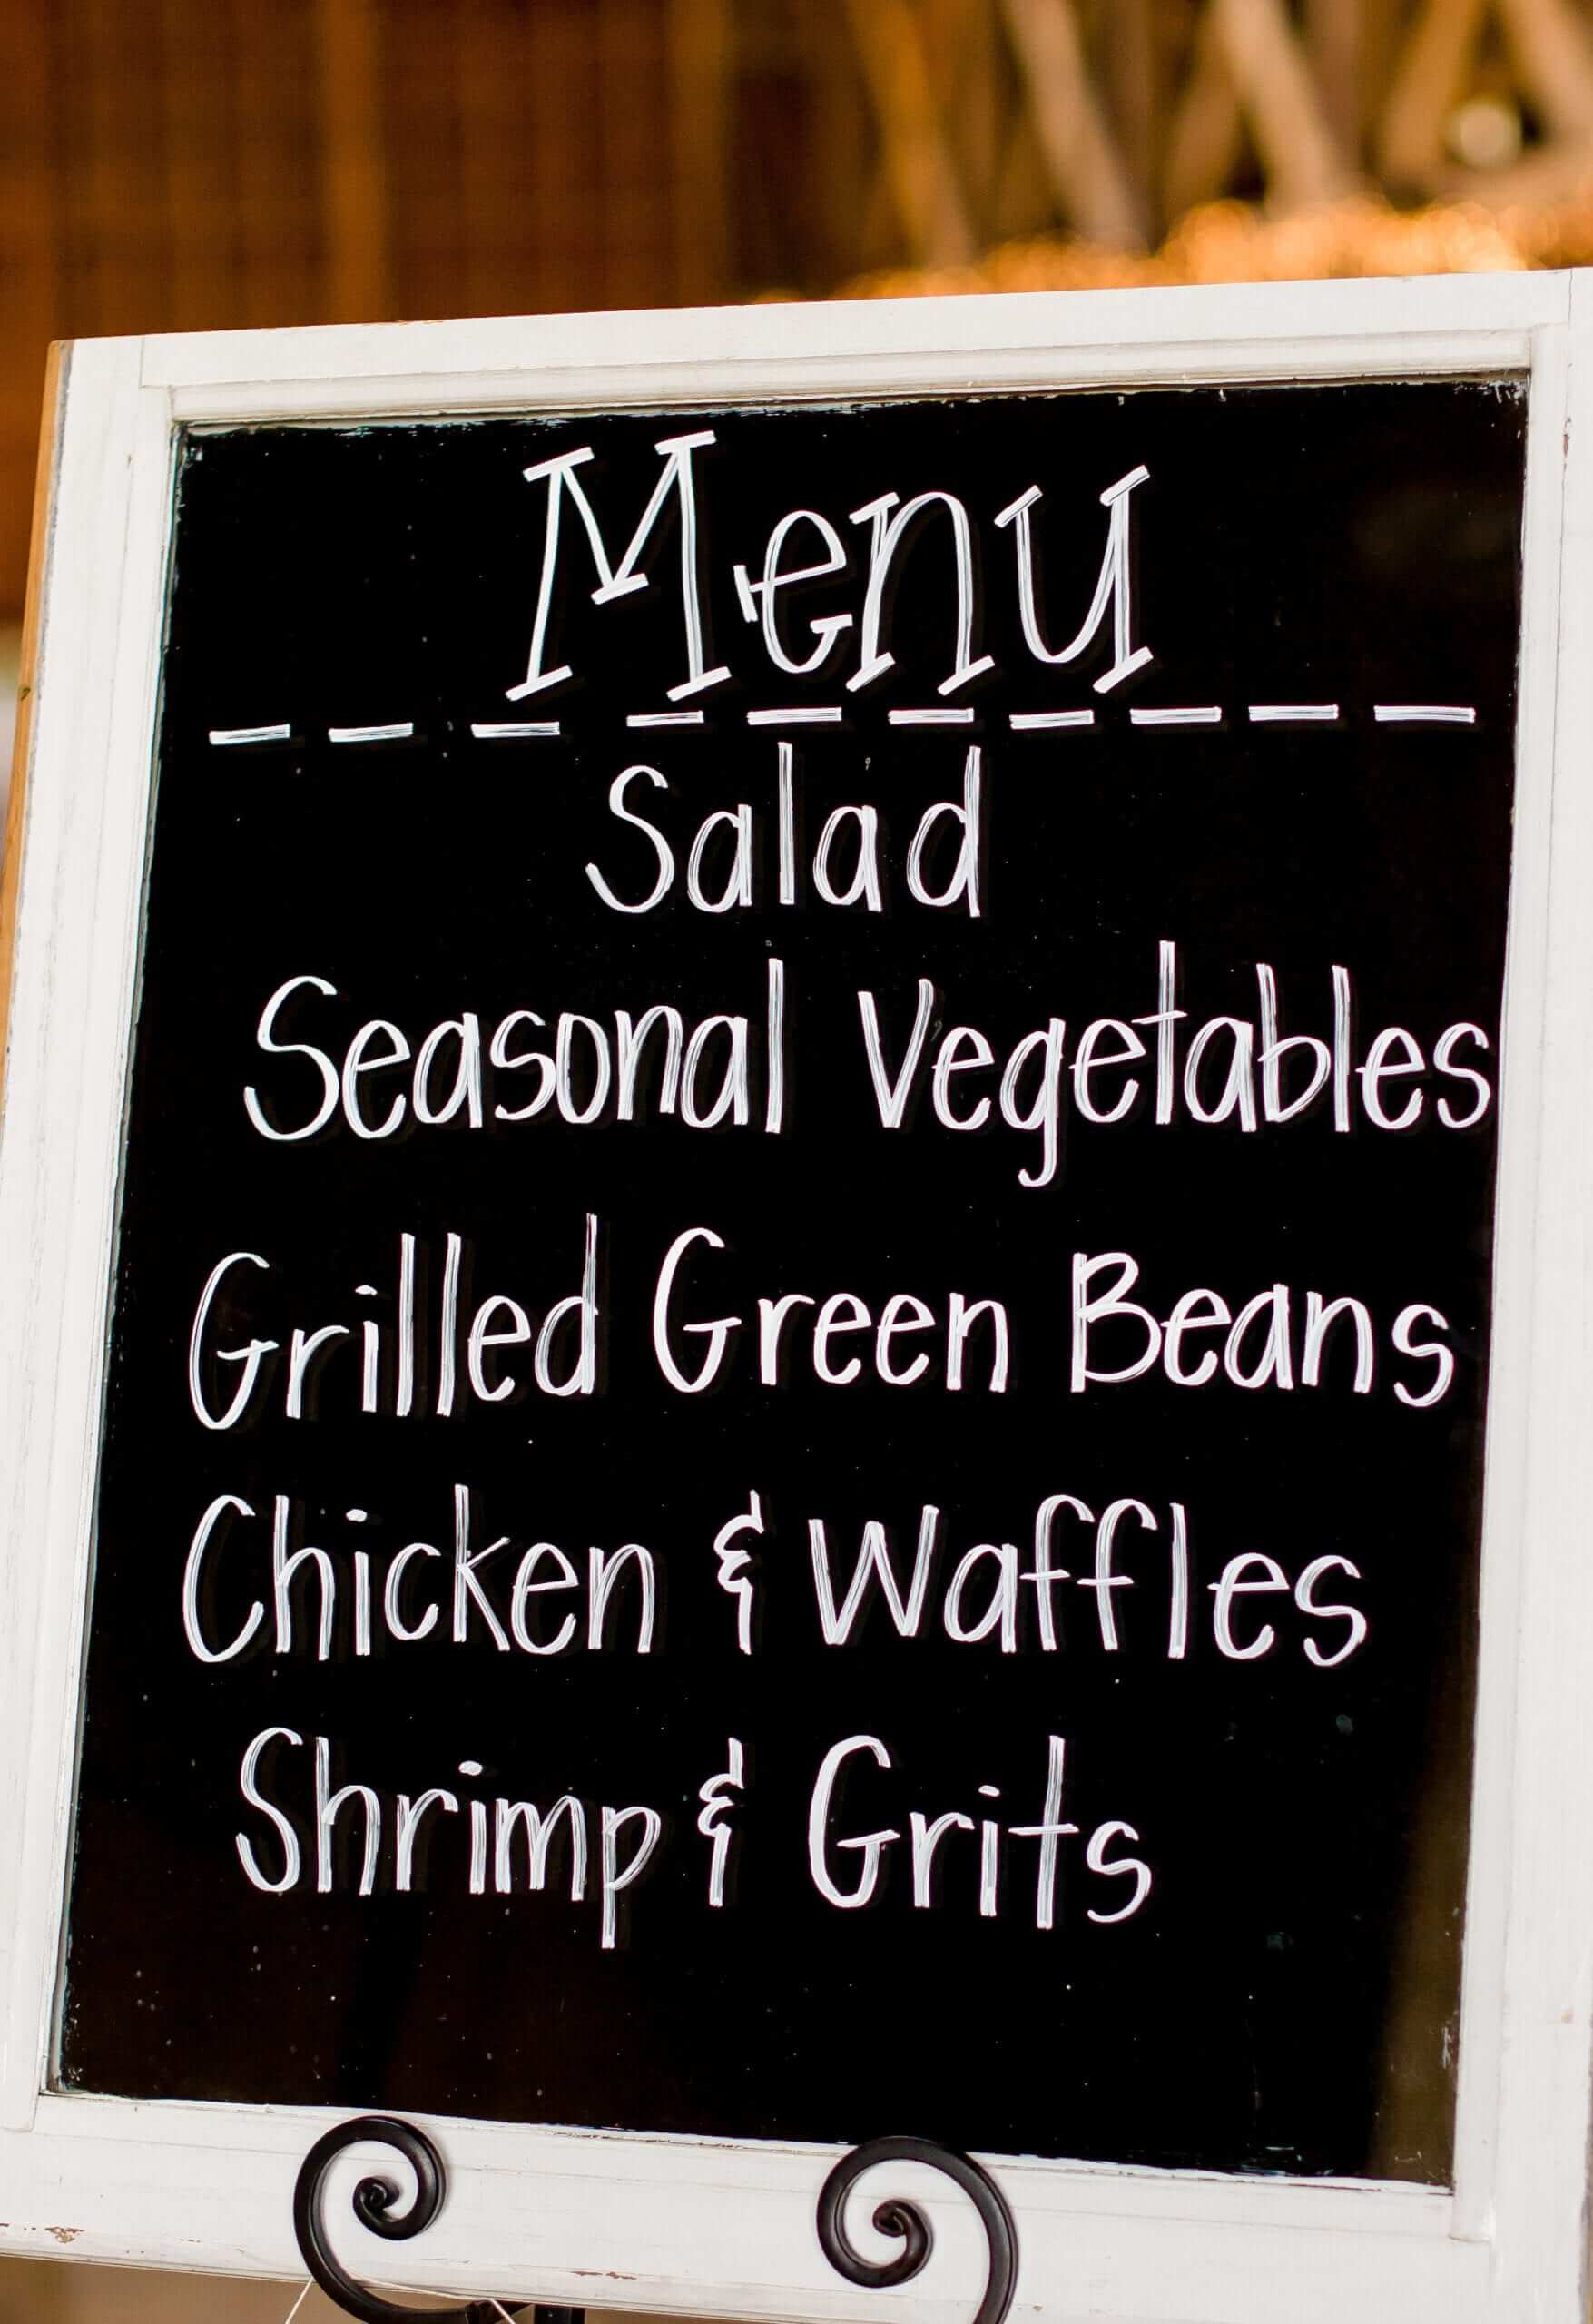 Menu
Salad
Seasonal Vegetables
Grilled Green Beans
Chicken & Waffles
Shrimp & Grits